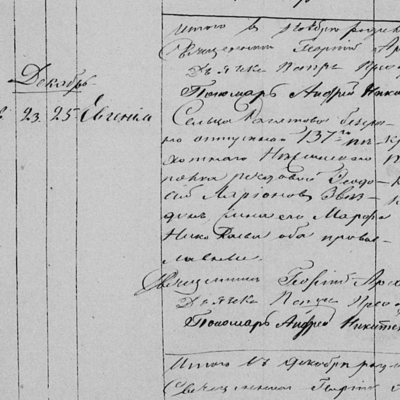 Итого в Ноябре роди
Священник Георгий Ар
Дьячек Петр Прео
Пономарь Андрей Никит
Декабрь
23 25 Евгения
Сельца безсро
чно отпускной 137го пе
хотнаго Нежинского
полка рядовой Феодо
сий Ларионов
жена его Марфа
Николаева оба право
славные
Священник Георгий Ар
Дьячек Петр Прео
Пономарь Андрей Никит
Итого въ Декабре роди
Священник Георгий